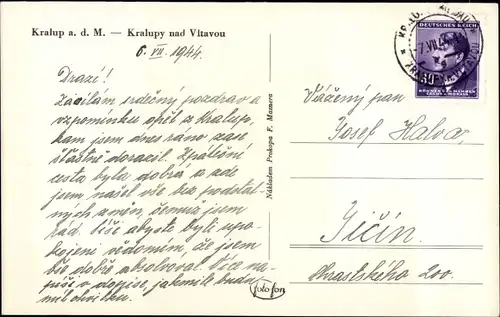 Kralup a. d. M. — Kralupy nad Vltavou
6. VII. 1944.
Drazí!
Zasílám srdečný pozdrav a
vzpomínku opět z Kralup,
kam jsem dnes ráno zase
šťastně dorazil. Zpáteční
cesta byla dobrá a zde
jsem našel vše bez podstat-
ných změn, čemuž jsem
rád. Píši abyste byli upo-
kojeni vědomím, že jsem
vše dobře absolvoval. Více na-
píši v dopise, jakmile budu
mít chvilku.
Nákladem Prokopa F. Mamera
foto fon
DEUTSCHES REICH
BÖHMEN U. MÄHREN
ČECHY A MORAVA
Vážený pan
Josef Halva,
Jičín.
Chrastského 200.